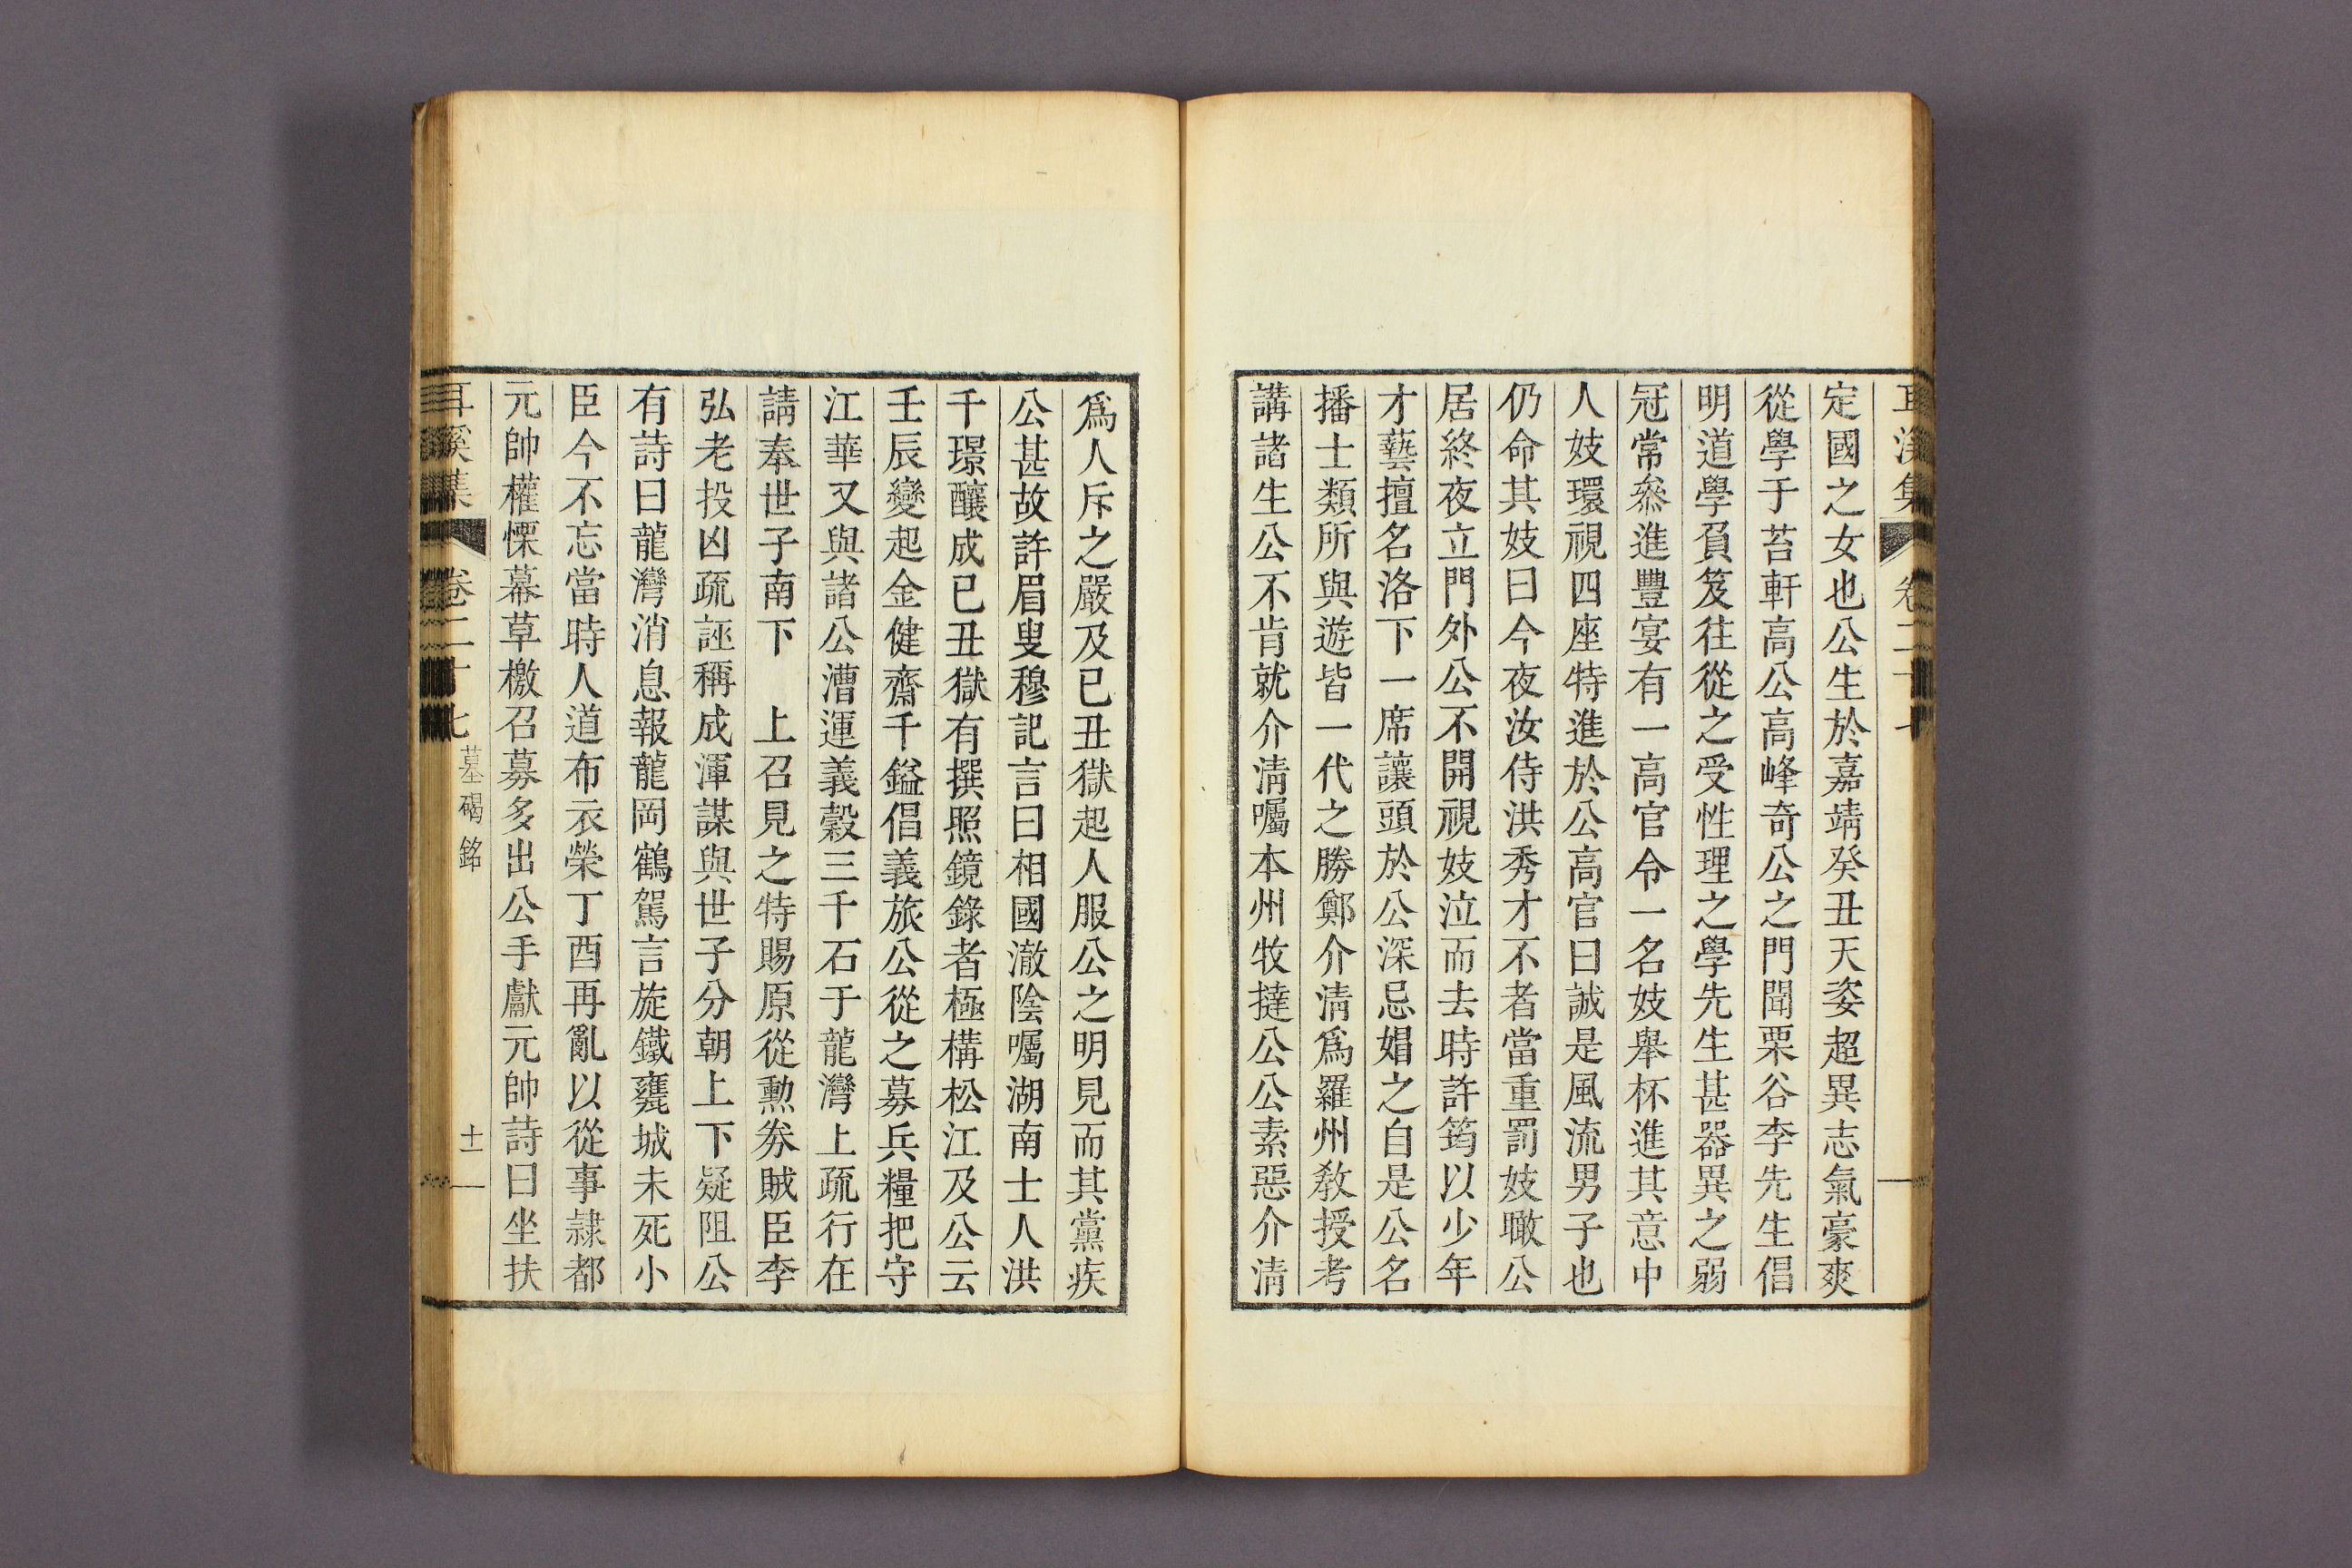 耳溪集 卷二十七
定國之女也公生於嘉靖癸丑天姿超異志氣豪爽
從學于苔軒高公高峰奇公之門聞栗谷李先生倡
明道學負笈往從之受性理之學先生甚器異之弱
冠常叅進豐宴有一高官令一名妓舉杯進其意中
人妓環視四座特進於公高官曰誠是風流男子也
仍命其妓曰今夜汝侍洪秀才不者當重罰妓瞰公
居終夜立門外公不開視妓泣而去時許筠以少年
才藝擅名洛下一席讓頭於公深忌娼之自是公名
播士類所與遊皆一代之勝鄭介淸爲羅州敎授考
講諸生公不肯就介淸囑本州牧撻公公素惡介淸
爲人斥之嚴及已丑獄起人服公之明見而其黨疾
公甚故許眉叟穆記言曰相國澈陰囑湖南士人洪
千璟釀成已丑獄有撰照鏡錄者極構松江及公云
壬辰變起金健齋千鎰倡義旅公從之募兵糧把守
江華又與諸公漕運義穀三千石于龍灣上疏行在
請奉世子南下　上召見之特賜原從勲券賊臣李
弘老投凶疏誣稱成渾謀與世子分朝上下疑阻公
有詩曰龍灣消息報龍岡鶴駕言旋鐵甕城未死小
臣今不忘當時人道布衣榮丁酉再亂以從事隷都
元帥權慄幕草檄召募多出公手獻元帥詩曰坐扶
耳溪集 卷二十七 墓碣銘 十一